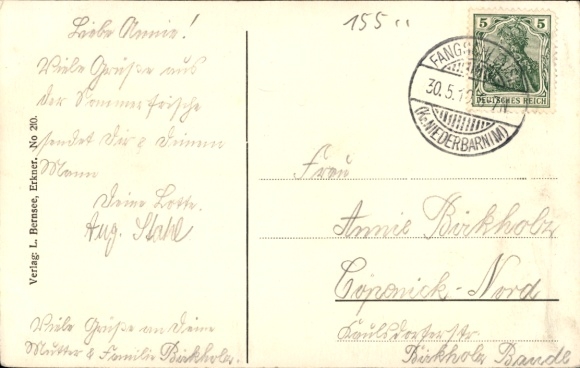 Liebe Annie!
Viele Grüße aus
der Sommerfrische
sendet Dir & Deinem
Mann
Deine Lotte.
Aug. Stahl
Viele Grüße an Deine
Mutter & Familie Birkholz.
Verlag: L. Bernsee, Erkner. No 210.
155
5 5
DEUTSCHES REICH
30.5.1
(Kr. NIEDERBARNIM)
Frau
Annie Birkholz
Cöpenick-Nord
Kaulsdorferstr
Birkholz Baude